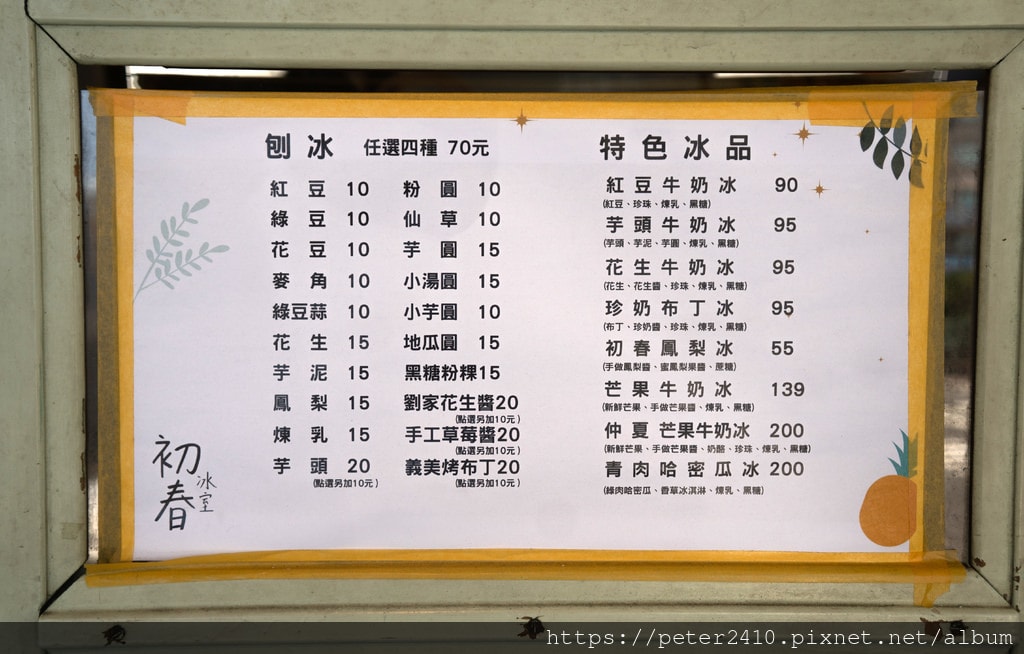 刨冰 任選四種 70元
紅豆 10 粉圓 10
綠豆 10 仙草 10
花豆 10 芋圓 15
麥角 10 小湯圓 15
綠豆蒜 10 小芋圓 10
花生 15 地瓜圓 15
芋泥 15 黑糖粉粿15
鳳梨 15 劉家花生醬20
(點選另加10元)
煉乳 15 手工草莓醬20
(點選另加10元)
芋頭 20 義美烤布丁20
(點選另加10元) (點選另加10元)
特色冰品
紅豆牛奶冰 90
(紅豆、珍珠、煉乳、黑糖)
芋頭牛奶冰 95
(芋頭、芋泥、芋圓、煉乳、黑糖)
花生牛奶冰 95
(花生、花生醬、珍珠、煉乳、黑糖)
珍奶布丁冰 95
(布丁、珍奶醬、珍珠、煉乳、黑糖)
初春鳳梨冰 55
(手做鳳梨醬、蜜鳳梨果醬、蔗糖)
芒果牛奶冰 139
(新鮮芒果、手做芒果醬、煉乳、黑糖)
仲夏芒果牛奶冰 200
(新鮮芒果、手做芒果醬、奶酪、珍珠、煉乳、黑糖)
青肉哈密瓜冰 200
(綠肉哈密瓜、香草冰淇淋、煉乳、黑糖)
初春冰室
https://peter2410.pixnet.net/album